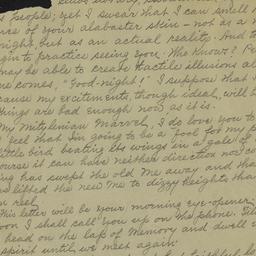 people; yet I swear that I can smell
of your alabaster skin - not as a
night, but as an actual reality. And
to practice seeing you. Who knows?
may be able to create tactile illusions
comes, "Good-night!" I suppose that
cause my excitement, though ideal, will
things are bad enough now as it is.
My Mytilenian Marvel, I do love you to
feel that I'm going to be a fool for my
little bird beating its wings in a gale of
course it can have neither direction nor
has swept the old me away and
lifted the new me to dizzy heights that
reel.
This letter will be your morning eye-opener
soon I shall call you up on the phone.
head on the lap of Memory and dwell
spirit until we meet again